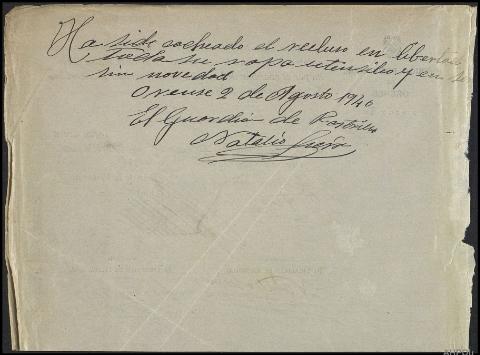 Ha sido cacheado el recluso en libertad
toda su ropa utensilios y en
sin novedad
Orense 2 de Agosto 1940
El Guardian de Rastrillo
Natalio